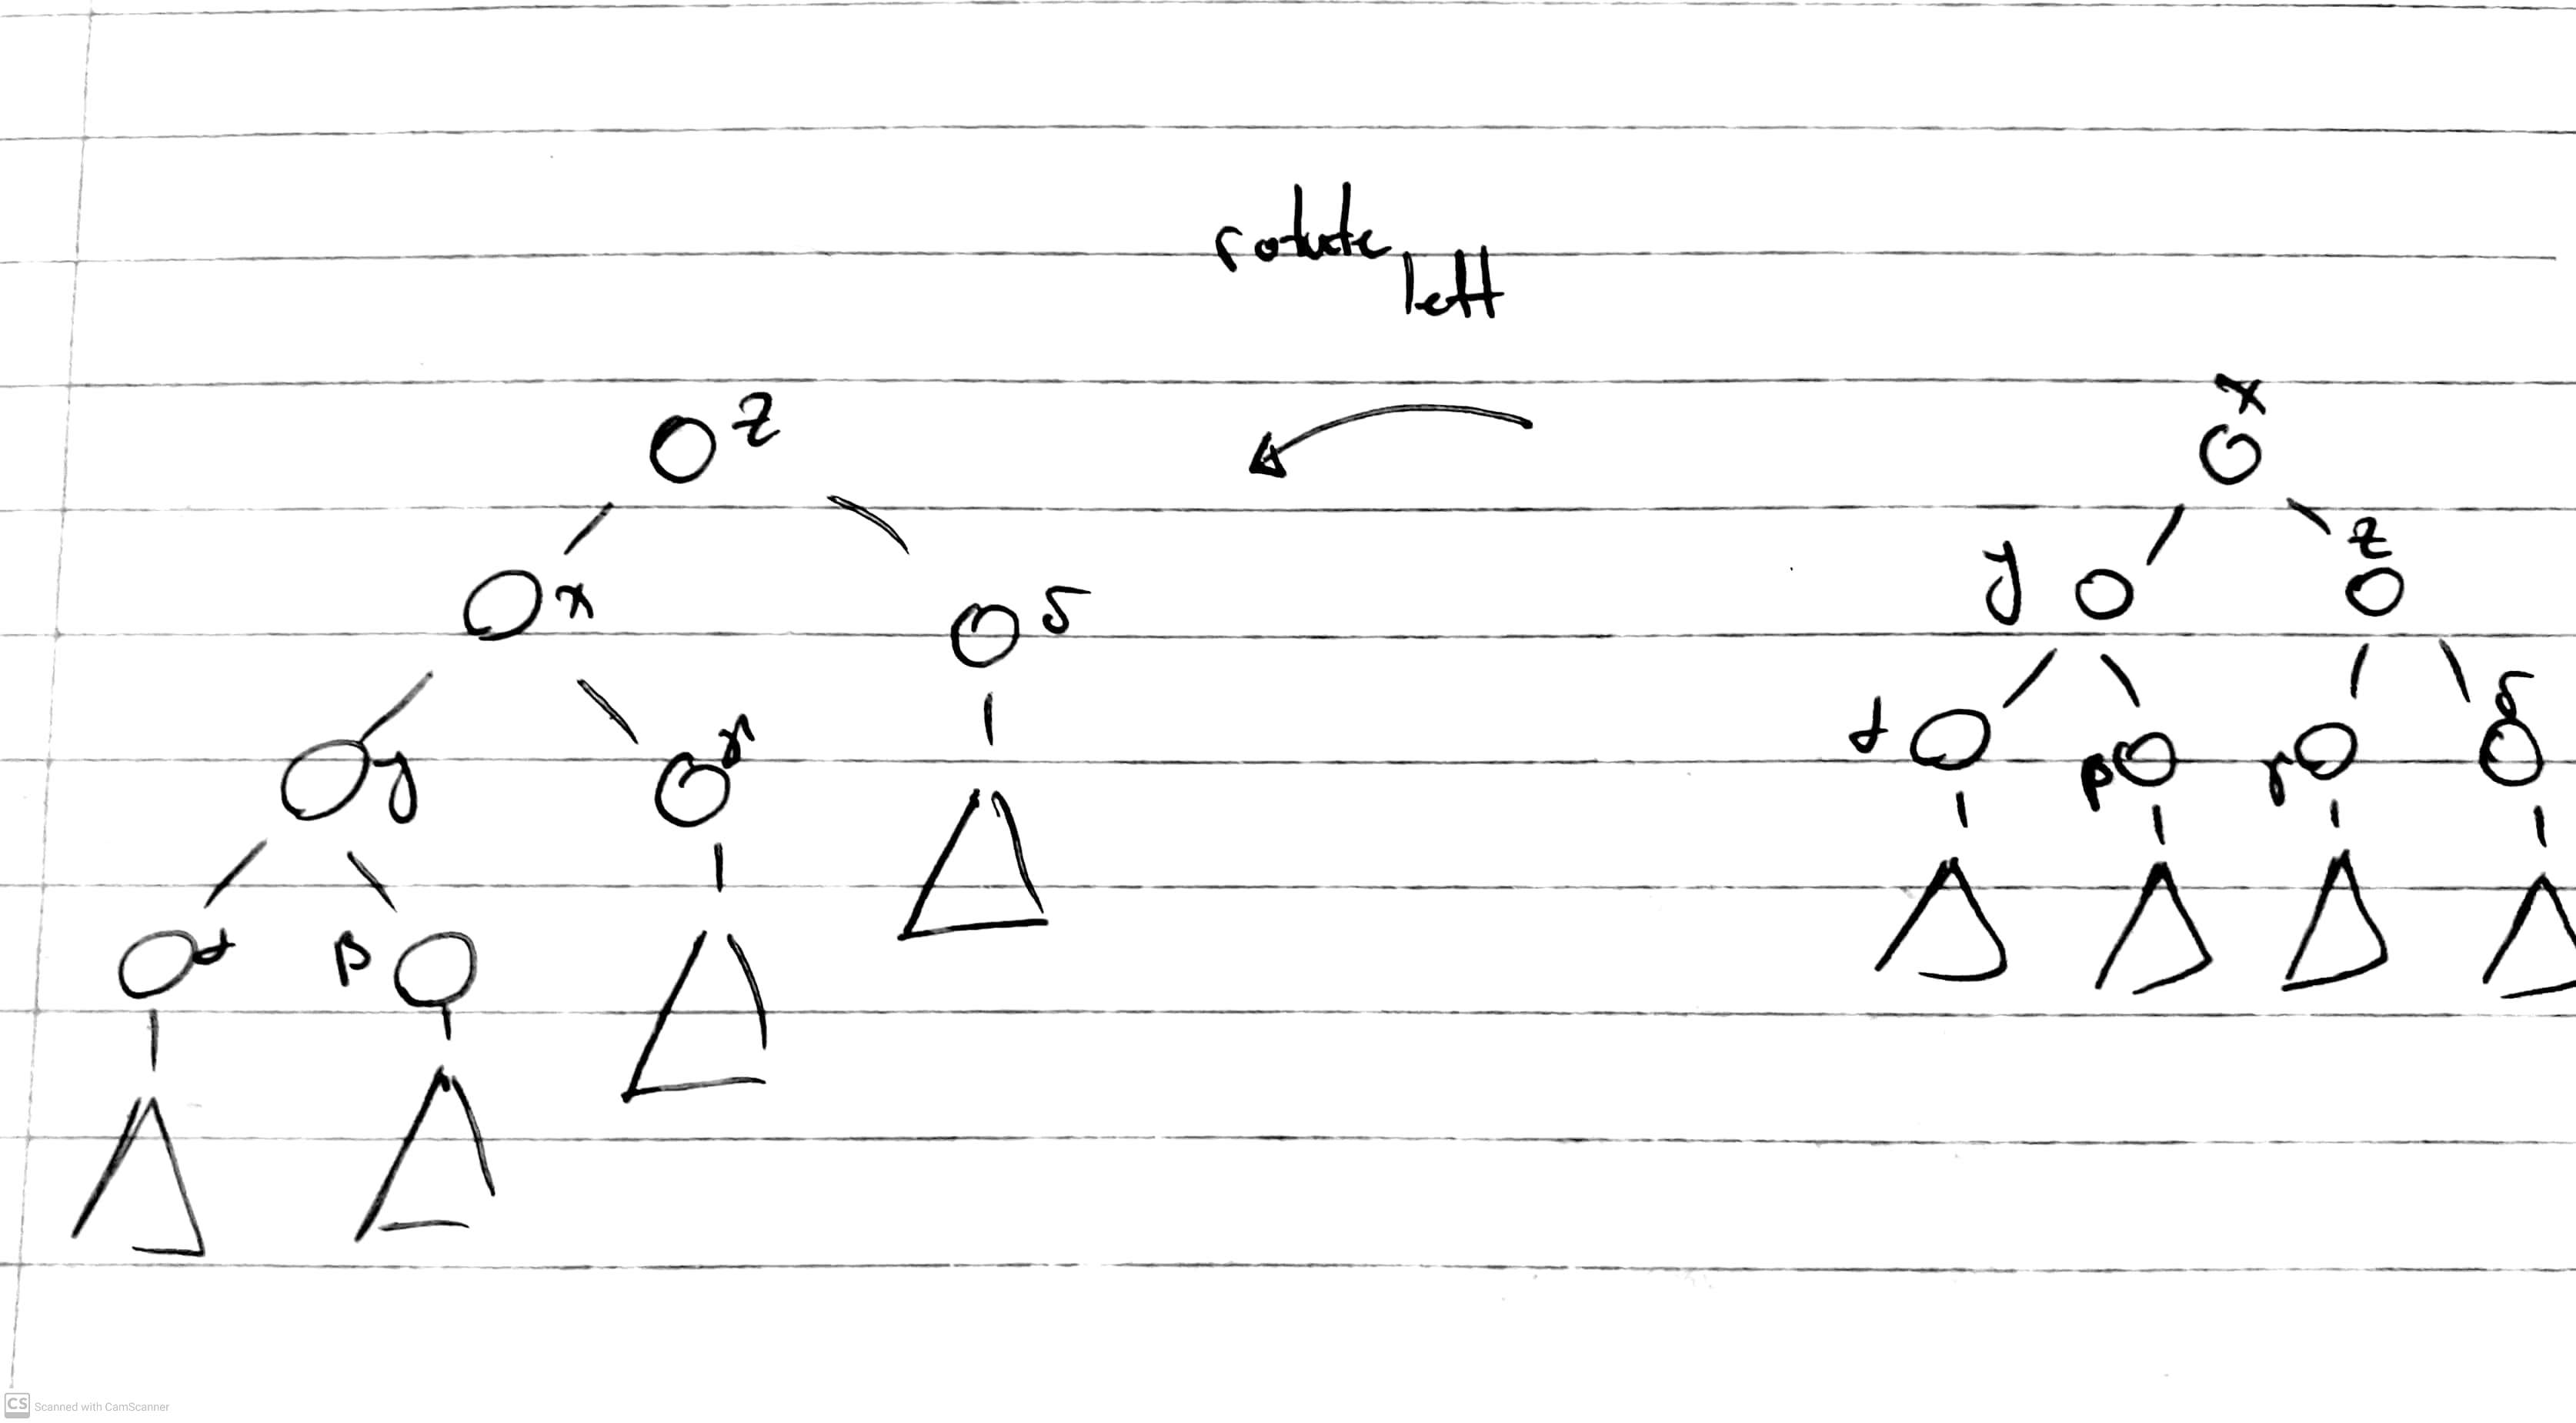 rotate
left
z
x
x
δ
y
z
y
γ
α
β
γ
δ
α
β
CS Scanned with CamScanner